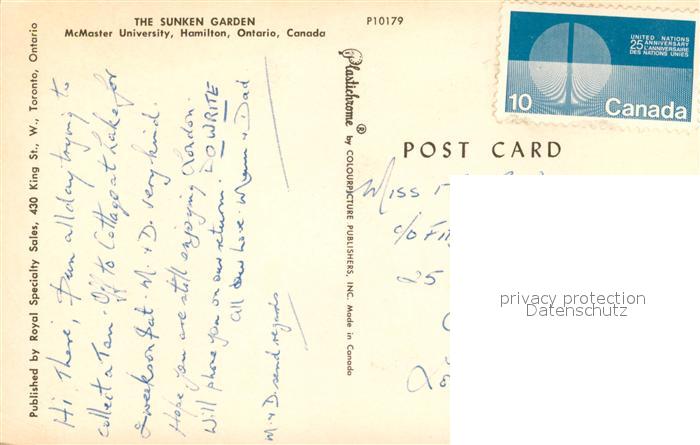 THE SUNKEN GARDEN
McMaster University, Hamilton, Ontario, Canada
P10179
Published by Royal Specialty Sales, 430 King St., W., Toronto, Ontario
Hi There, Puun all day trying to
collect a Tan. Off to Cottage at Lake for
2 weeks on Sat. M. & D. very kind.
Hope you are still enjoying London.
Will phone you on our return. DO WRITE
all our love. Mum & Dad
M. & D. send regards
Plastichrome ® by COLOURPICTURE PUBLISHERS, INC. Made in Canada
UNITED NATIONS
25 ANNIVERSARY
L'ANNIVERSAIRE
DES NATIONS UNIES
10 Canada
POST CARD
Miss
c/o
25
privacy protection
Datenschutz